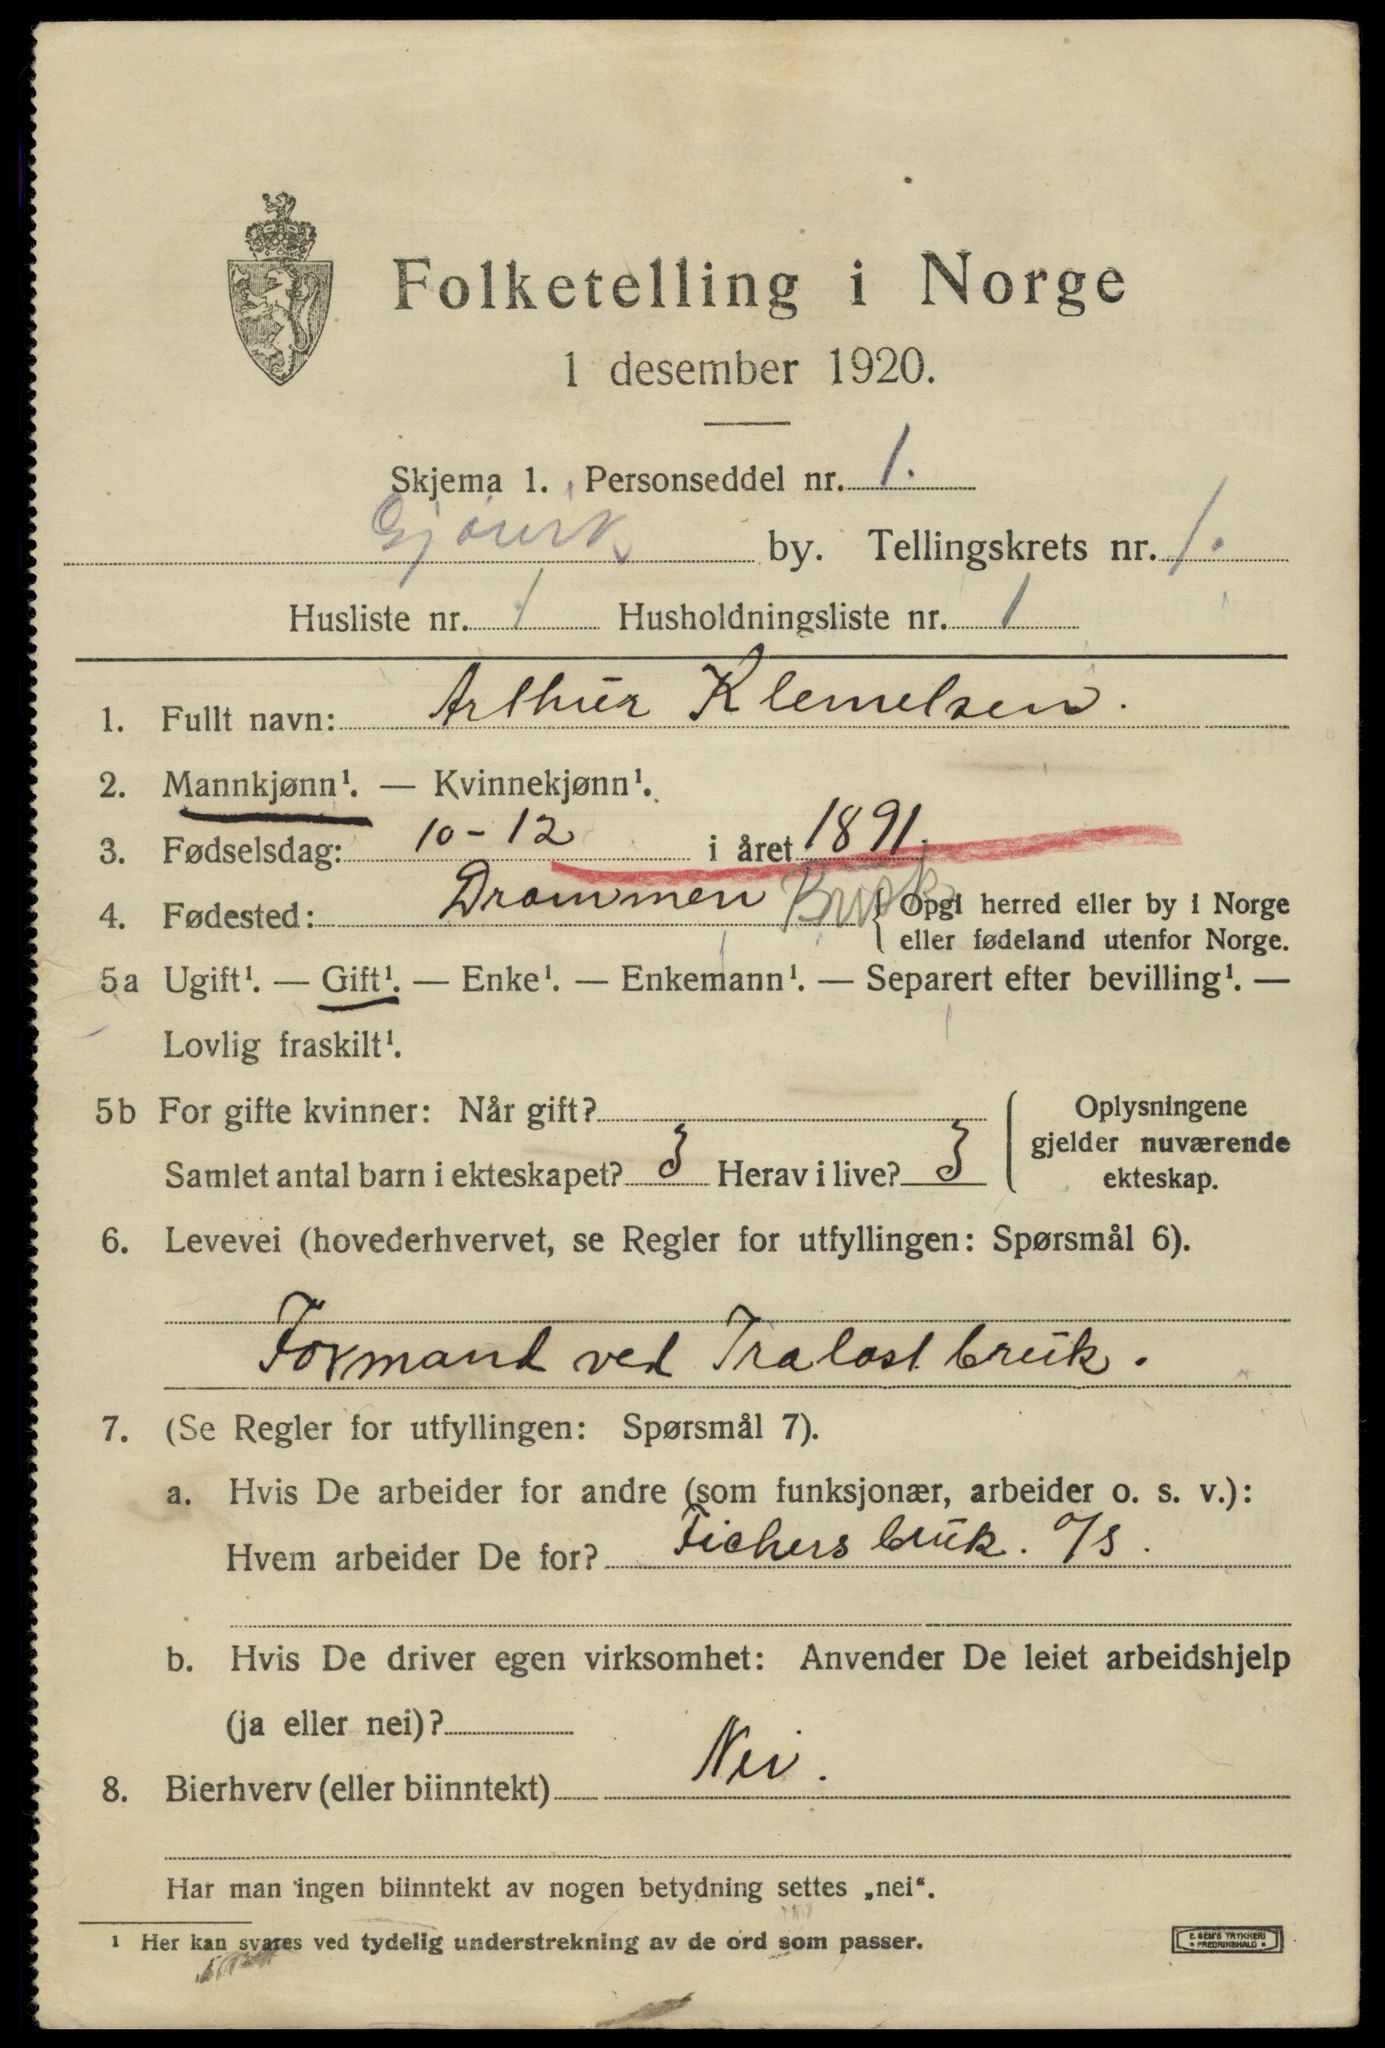 Folketelling i Norge
1 desember 1920.
Skjema 1. Personseddel nr. 1.
Gjøvik by. Tellingskrets nr. 1.
Husliste nr. 1 Husholdningsliste nr. 1
1. Fullt navn: Arthur Klemetsen.
2. Mannkjønn¹. — Kvinnekjønn¹.
3. Fødselsdag: 10-12 i året 1891.
4. Fødested: Drammen Busk { Opgi herred eller by i Norge
eller fødeland utenfor Norge.
5a Ugift¹. — Gift¹. — Enke¹. — Enkemann¹. — Separert efter bevilling¹. —
Lovlig fraskilt¹.
5b For gifte kvinner: Når gift? { Oplysningene
gjelder nuværende
Samlet antal barn i ekteskapet? 3 Herav i live? 3 ekteskap.
6. Levevei (hovederhvervet, se Regler for utfyllingen: Spørsmål 6).
Formand ved Tralastbruk.
7. (Se Regler for utfyllingen: Spørsmål 7).
a. Hvis De arbeider for andre (som funksjonær, arbeider o. s. v.):
Hvem arbeider De for? Fichers bruk. A/S.
b. Hvis De driver egen virksomhet: Anvender De leiet arbeidshjelp
(ja eller nei)?
8. Bierhverv (eller biinntekt) Nei.
Har man ingen biinntekt av nogen betydning settes „nei“.
¹ Her kan svares ved tydelig understrekning av de ord som passer.
E. SEM'S TRYKKERI
• FREDRIKSHALD •